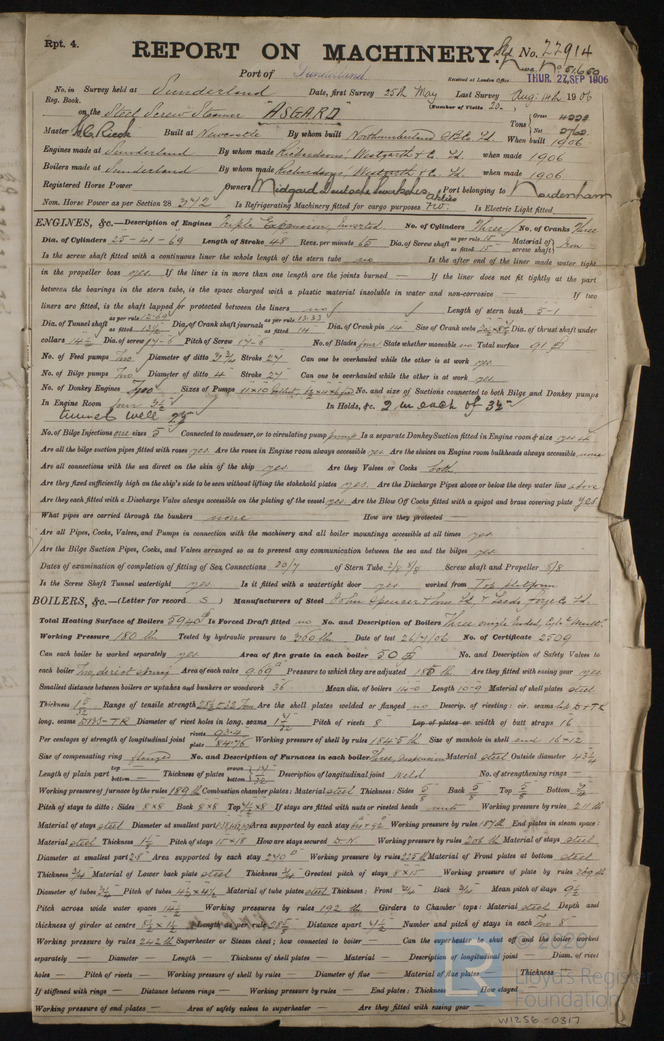 Rpt. 4.
REPORT ON MACHINERY.
No. 22914
Port of Sunderland
Received at London Office THUR. 27 SEP 1906
No. in Survey held at Sunderland Date, first Survey 25th May Last Survey Aug: 14th 1906
Reg. Book. (Number of Visits 20)
on the Steel Screw Steamer "ASGARD" Tons Gross 4222 Net
Master Built at Newcastle By whom built Northumberland S.B. Co. Ld. When built 1906
Engines made at Sunderland By whom made Richardsons, Westgarth & Co. Ld. when made 1906
Boilers made at Sunderland By whom made Richardsons, Westgarth & Co. Ld. when made 1906
Registered Horse Power Owners Midgard Port belonging to Nordenham
Nom. Horse Power as per Section 28 342 Is Refrigerating Machinery fitted for cargo purposes no. Is Electric Light fitted
ENGINES, &c.—Description of Engines Triple Expansion, Inverted No. of Cylinders Three No. of Cranks Three
Dia. of Cylinders 25-41-69 Length of Stroke 48 Revs. per minute 65 Dia. of Screw shaft as per rule as fitted 15 Material of screw shaft Iron
Is the screw shaft fitted with a continuous liner the whole length of the stern tube no Is the after end of the liner made water tight
in the propeller boss yes. If the liner is in more than one length are the joints burned — If the liner does not fit tightly at the part
between the bearings in the stern tube, is the space charged with a plastic material insoluble in water and non-corrosive — If two
liners are fitted, is the shaft lapped or protected between the liners no Length of stern bush 5-1
Dia. of Tunnel shaft as per rule 12.69 as fitted 13½ Dia. of Crank shaft journals as per rule 13.33 as fitted 14 Dia. of Crank pin 14 Size of Crank webs Dia. of thrust shaft under
collars 14½ Dia. of screw 17-6 Pitch of Screw 17-6 No. of Blades four State whether moveable no Total surface 91
No. of Feed pumps Two Diameter of ditto 3¾ Stroke 27 Can one be overhauled while the other is at work yes
No. of Bilge pumps Two Diameter of ditto 4 Stroke 27 Can one be overhauled while the other is at work yes
No. of Donkey Engines Two Sizes of Pumps No. and size of Suctions connected to both Bilge and Donkey pumps
In Engine Room four 3½ In Holds, &c. 2 in each of 3½
Tunnel well
No. of Bilge Injections one sizes 5 Connected to condenser, or to circulating pump pump Is a separate Donkey Suction fitted in Engine room & size yes 4
Are all the bilge suction pipes fitted with roses yes. Are the roses in Engine room always accessible yes Are the sluices on Engine room bulkheads always accessible none
Are all connections with the sea direct on the skin of the ship yes Are they Valves or Cocks both
Are they fixed sufficiently high on the ship's side to be seen without lifting the stokehold plates yes. Are the Discharge Pipes above or below the deep water line above
Are they each fitted with a Discharge Valve always accessible on the plating of the vessel yes Are the Blow Off Cocks fitted with a spigot and brass covering plate yes
What pipes are carried through the bunkers none How are they protected —
Are all Pipes, Cocks, Valves, and Pumps in connection with the machinery and all boiler mountings accessible at all times yes
Are the Bilge Suction Pipes, Cocks, and Valves arranged so as to prevent any communication between the sea and the bilges yes
Dates of examination of completion of fitting of Sea Connections 20/7 of Stern Tube 2/8 3/8 Screw shaft and Propeller 8/8
Is the Screw Shaft Tunnel watertight yes Is it fitted with a watertight door yes worked from Top platform
BOILERS, &c.—(Letter for record S) Manufacturers of Steel John Spencer & Sons Ld. & Leeds Forge Co. Ld.
Total Heating Surface of Boilers 5940 Is Forced Draft fitted no No. and Description of Boilers Three single ended, Cyl. Mult.
Working Pressure 180 lb Tested by hydraulic pressure to 360 lb Date of test 26/7/06 No. of Certificate 2509
Can each boiler be worked separately yes Area of fire grate in each boiler 50 No. and Description of Safety Valves to
each boiler Two, direct spring Area of each valve 9.69 Pressure to which they are adjusted 185 lb. Are they fitted with easing gear yes
Smallest distance between boilers or uptakes and bunkers or woodwork 36 Mean dia. of boilers 14-0 Length 10-9 Material of shell plates steel
Thickness Range of tensile strength 28½-32 Are the shell plates welded or flanged no Descrip. of riveting: cir. seams
long. seams D.B.S.-T.R. Diameter of rivet holes in long. seams Pitch of rivets 8 Lap of plates or width of butt straps 16
Per centages of strength of longitudinal joint rivets 93.4 plate 84.76 Working pressure of shell by rules 184.5 lb Size of manhole in shell end 16×12
Size of compensating ring flanged No. and Description of Furnaces in each boiler Three, Material steel Outside diameter 43¼
Length of plain part top — bottom — Thickness of plates crown bottom Description of longitudinal joint weld No. of strengthening rings —
Working pressure of furnace by the rules 189 lb Combustion chamber plates: Material steel Thickness: Sides 5/8 Back 5/8 Top 5/8 Bottom ¾
Pitch of stays to ditto: Sides 8×8 Back 8×8 Top If stays are fitted with nuts or riveted heads nuts Working pressure by rules 211 lb
Material of stays steel Diameter at smallest part Area supported by each stay Working pressure by rules 187 lb End plates in steam space:
Material steel Thickness Pitch of stays 15×18 How are stays secured D.N. Working pressure by rules 206 lb Material of stays steel
Diameter at smallest part Area supported by each stay 270 Working pressure by rules 225 lb Material of Front plates at bottom steel
Thickness ¾ Material of Lower back plate steel Thickness ¾ Greatest pitch of stays 8×15 Working pressure of plate by rules
Diameter of tubes 3¼ Pitch of tubes 4½×4½ Material of tube plates steel Thickness: Front ¾ Back ¾ Mean pitch of stays 9½
Pitch across wide water spaces 14½ Working pressures by rules 192 lb Girders to Chamber tops: Material steel Depth and
thickness of girder at centre Length as per rule 28⅝ Distance apart 7½ Number and pitch of stays in each Two 8
Working pressure by rules 242 lb Superheater or Steam chest; how connected to boiler — Can the superheater be shut off and the boiler worked
separately — Diameter — Length — Thickness of shell plates — Material — Description of longitudinal joint — Diam. of rivet
holes — Pitch of rivets — Working pressure of shell by rules — Diameter of flue — Material of flue plates — Thickness —
If stiffened with rings — Distance between rings — Working pressure by rules — End plates: Thickness — How stayed —
Working pressure of end plates — Area of safety valves to superheater — Are they fitted with easing gear —
© 2020
Lloyd's Register
Foundation
W1256-0317